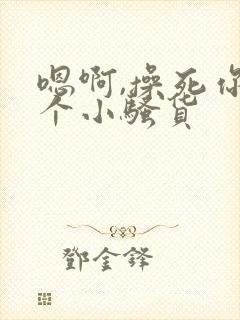 嗯啊,操死你
个小骚货
鄧金鋒